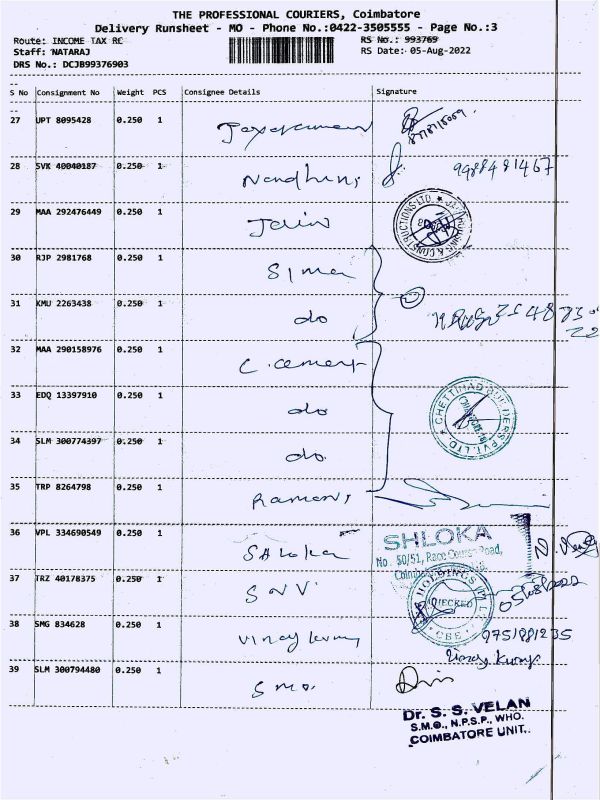 THE PROFESSIONAL COURIERS, Coimbatore
Delivery Runsheet - MO - Phone No.:0422-3505555 - Page No.:3
Route: INCOME TAX RC RS No.: 993769
Staff: NATARAJ RS Date: 05-Aug-2022
DRS No.: DCJB99376903
S No Consignment No Weight PCS Consignee Details Signature
27 UPT 8095428 0.250 1
28 SVK 40040187 0.250 1 Nandhini 9988491467
29 MAA 292476449 0.250 1 Jain
30 RJP 2981768 0.250 1 Sima
31 KMU 2263438 0.250 1 do
32 MAA 290158976 0.250 1 C. cement
33 EDQ 13397910 0.250 1 do
CHETTINAD BUILDERS PVT. LTD.
34 SLM 300774397 0.250 1 do.
35 TRP 8264798 0.250 1 Ramani
36 VPL 334690549 0.250 1 Shloka
SHLOKA
No. 50/51, Race Course Road,
37 TRZ 40178375 0.250 1 SNV.
HOLDINGS
CHECKED
CBE
05/08/2022
38 SMG 834628 0.250 1 Vinay kumar 9751881235
Vinay Kumar
39 SLM 300794480 0.250 1 SMO.
Dr. S. S. VELAN
S.M.O., N.P.S.P., WHO.
COIMBATORE UNIT.